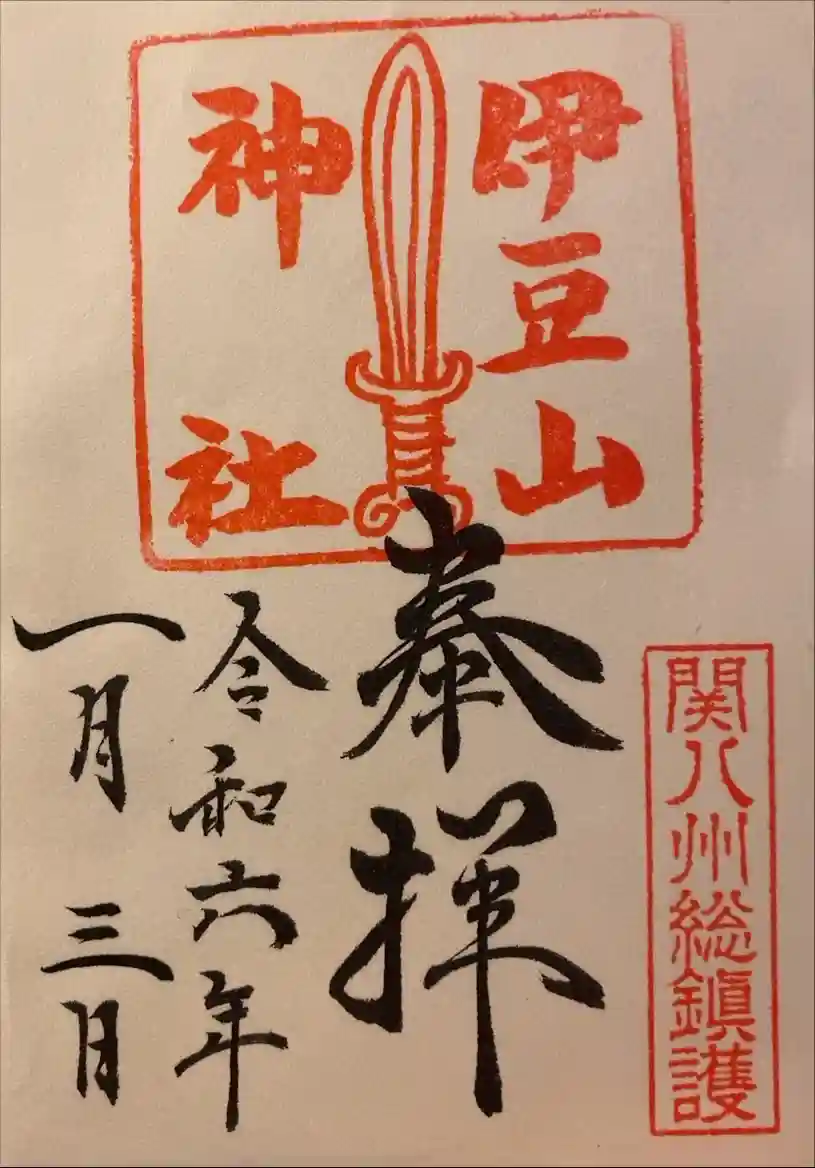 伊豆山
神社
関八州総鎮護
奉拝
令和六年
一月三日